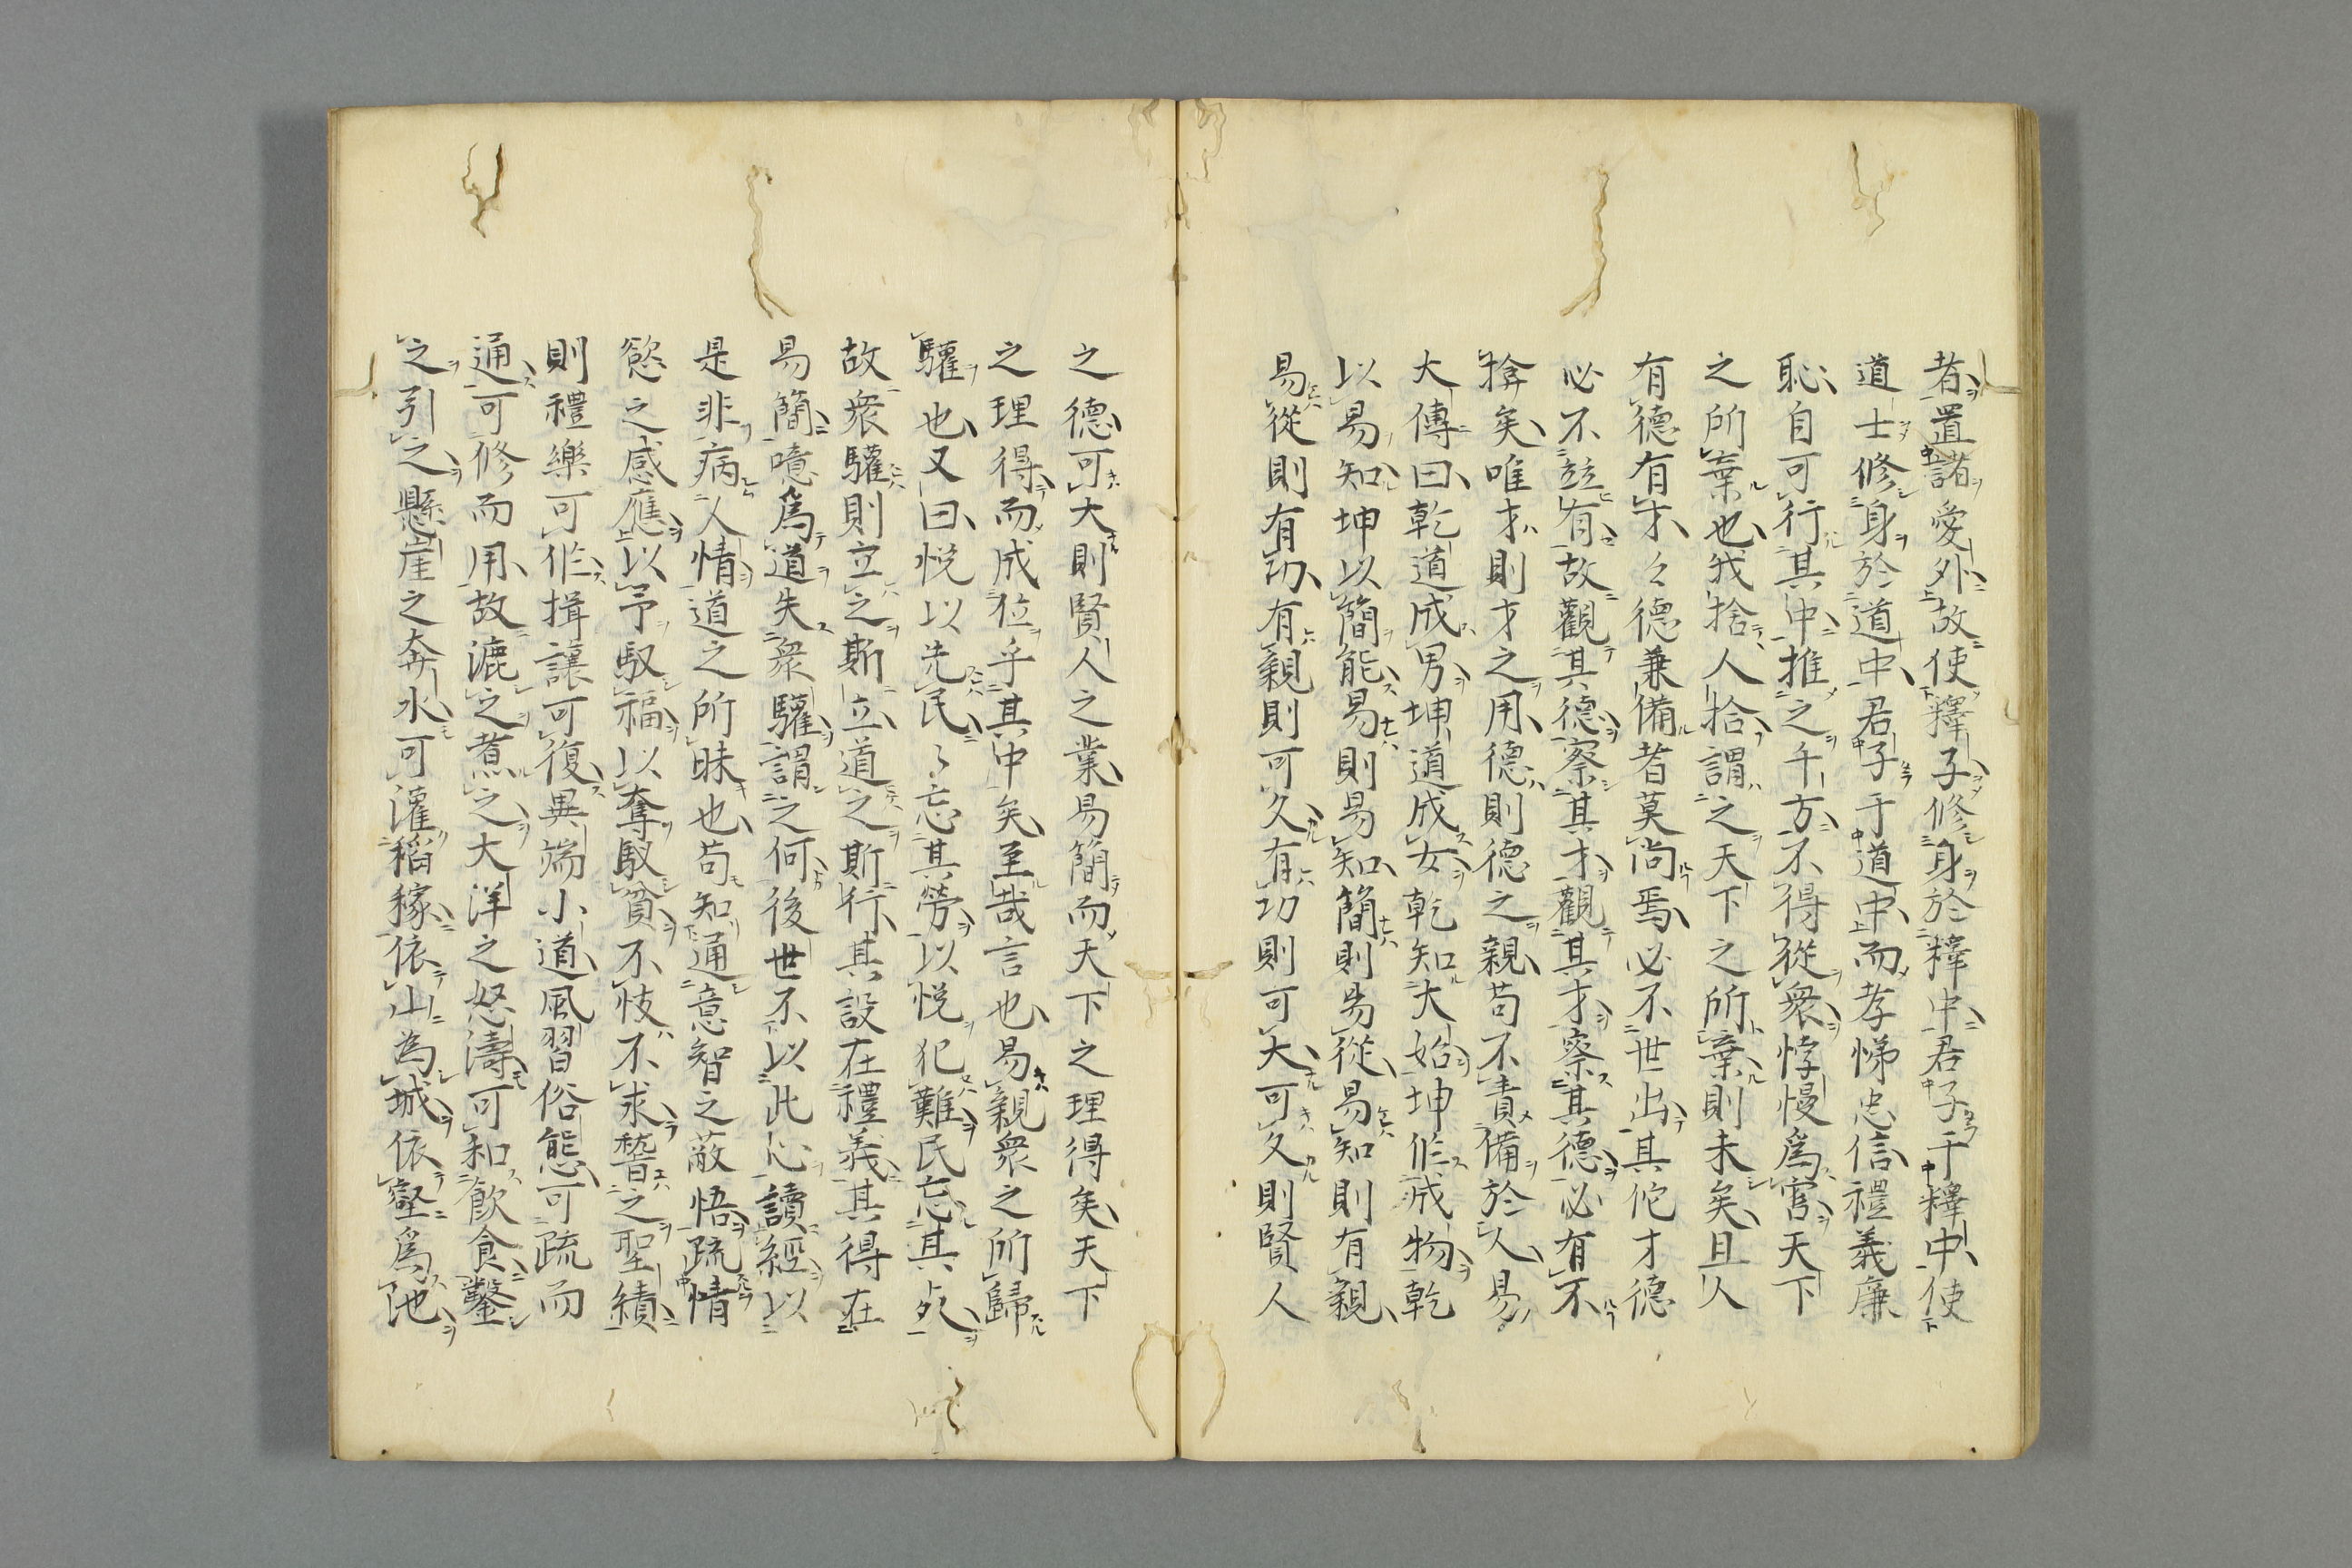 者置諸愛外故使釋子修身於釋中君子于釋中使
道士修身於道中君子于道中而孝悌忠信禮義廉
恥自可行其中推之千方不得從衆悖慢爲官天下
之所棄也我捨人拾謂之天下之所棄則未矣且人
有德有才々德兼備者莫尚焉必不世出其佗才德
必不竝有故觀其德察其才觀其才察其德必有不
揜矣唯才則才之用德則德之親苟不責備於人易
大傳曰乾道成男坤道成女乾知大始坤作成物乾
以易知坤以簡能易則易知簡則易從易知則有親
易從則有功有親則可久有功則可大可久則賢人
之德可大則賢人之業易簡而天下之理得矣天下
之理得而成位乎其中矣至哉言也易親衆之所歸
驩也又曰悅以先民々忘其勞以悅犯難民忘其死
故衆驩則立之斯立道之斯行其設在禮義其得在
易簡噫爲道失衆驩謂之何後世不以此心讀經以
是非病人情道之所昧也苟知通意智之蔽悟疏情
慾之感應以予馭福以奪馭貧不忮不求替之聖績
則禮樂可作揖讓可復異端小道風習俗態可疏而
通可修而用故漉之煮之大洋之怒濤可和飲食鑿
之引之懸崖之奔水可灌稻稼依山為城依壑爲池